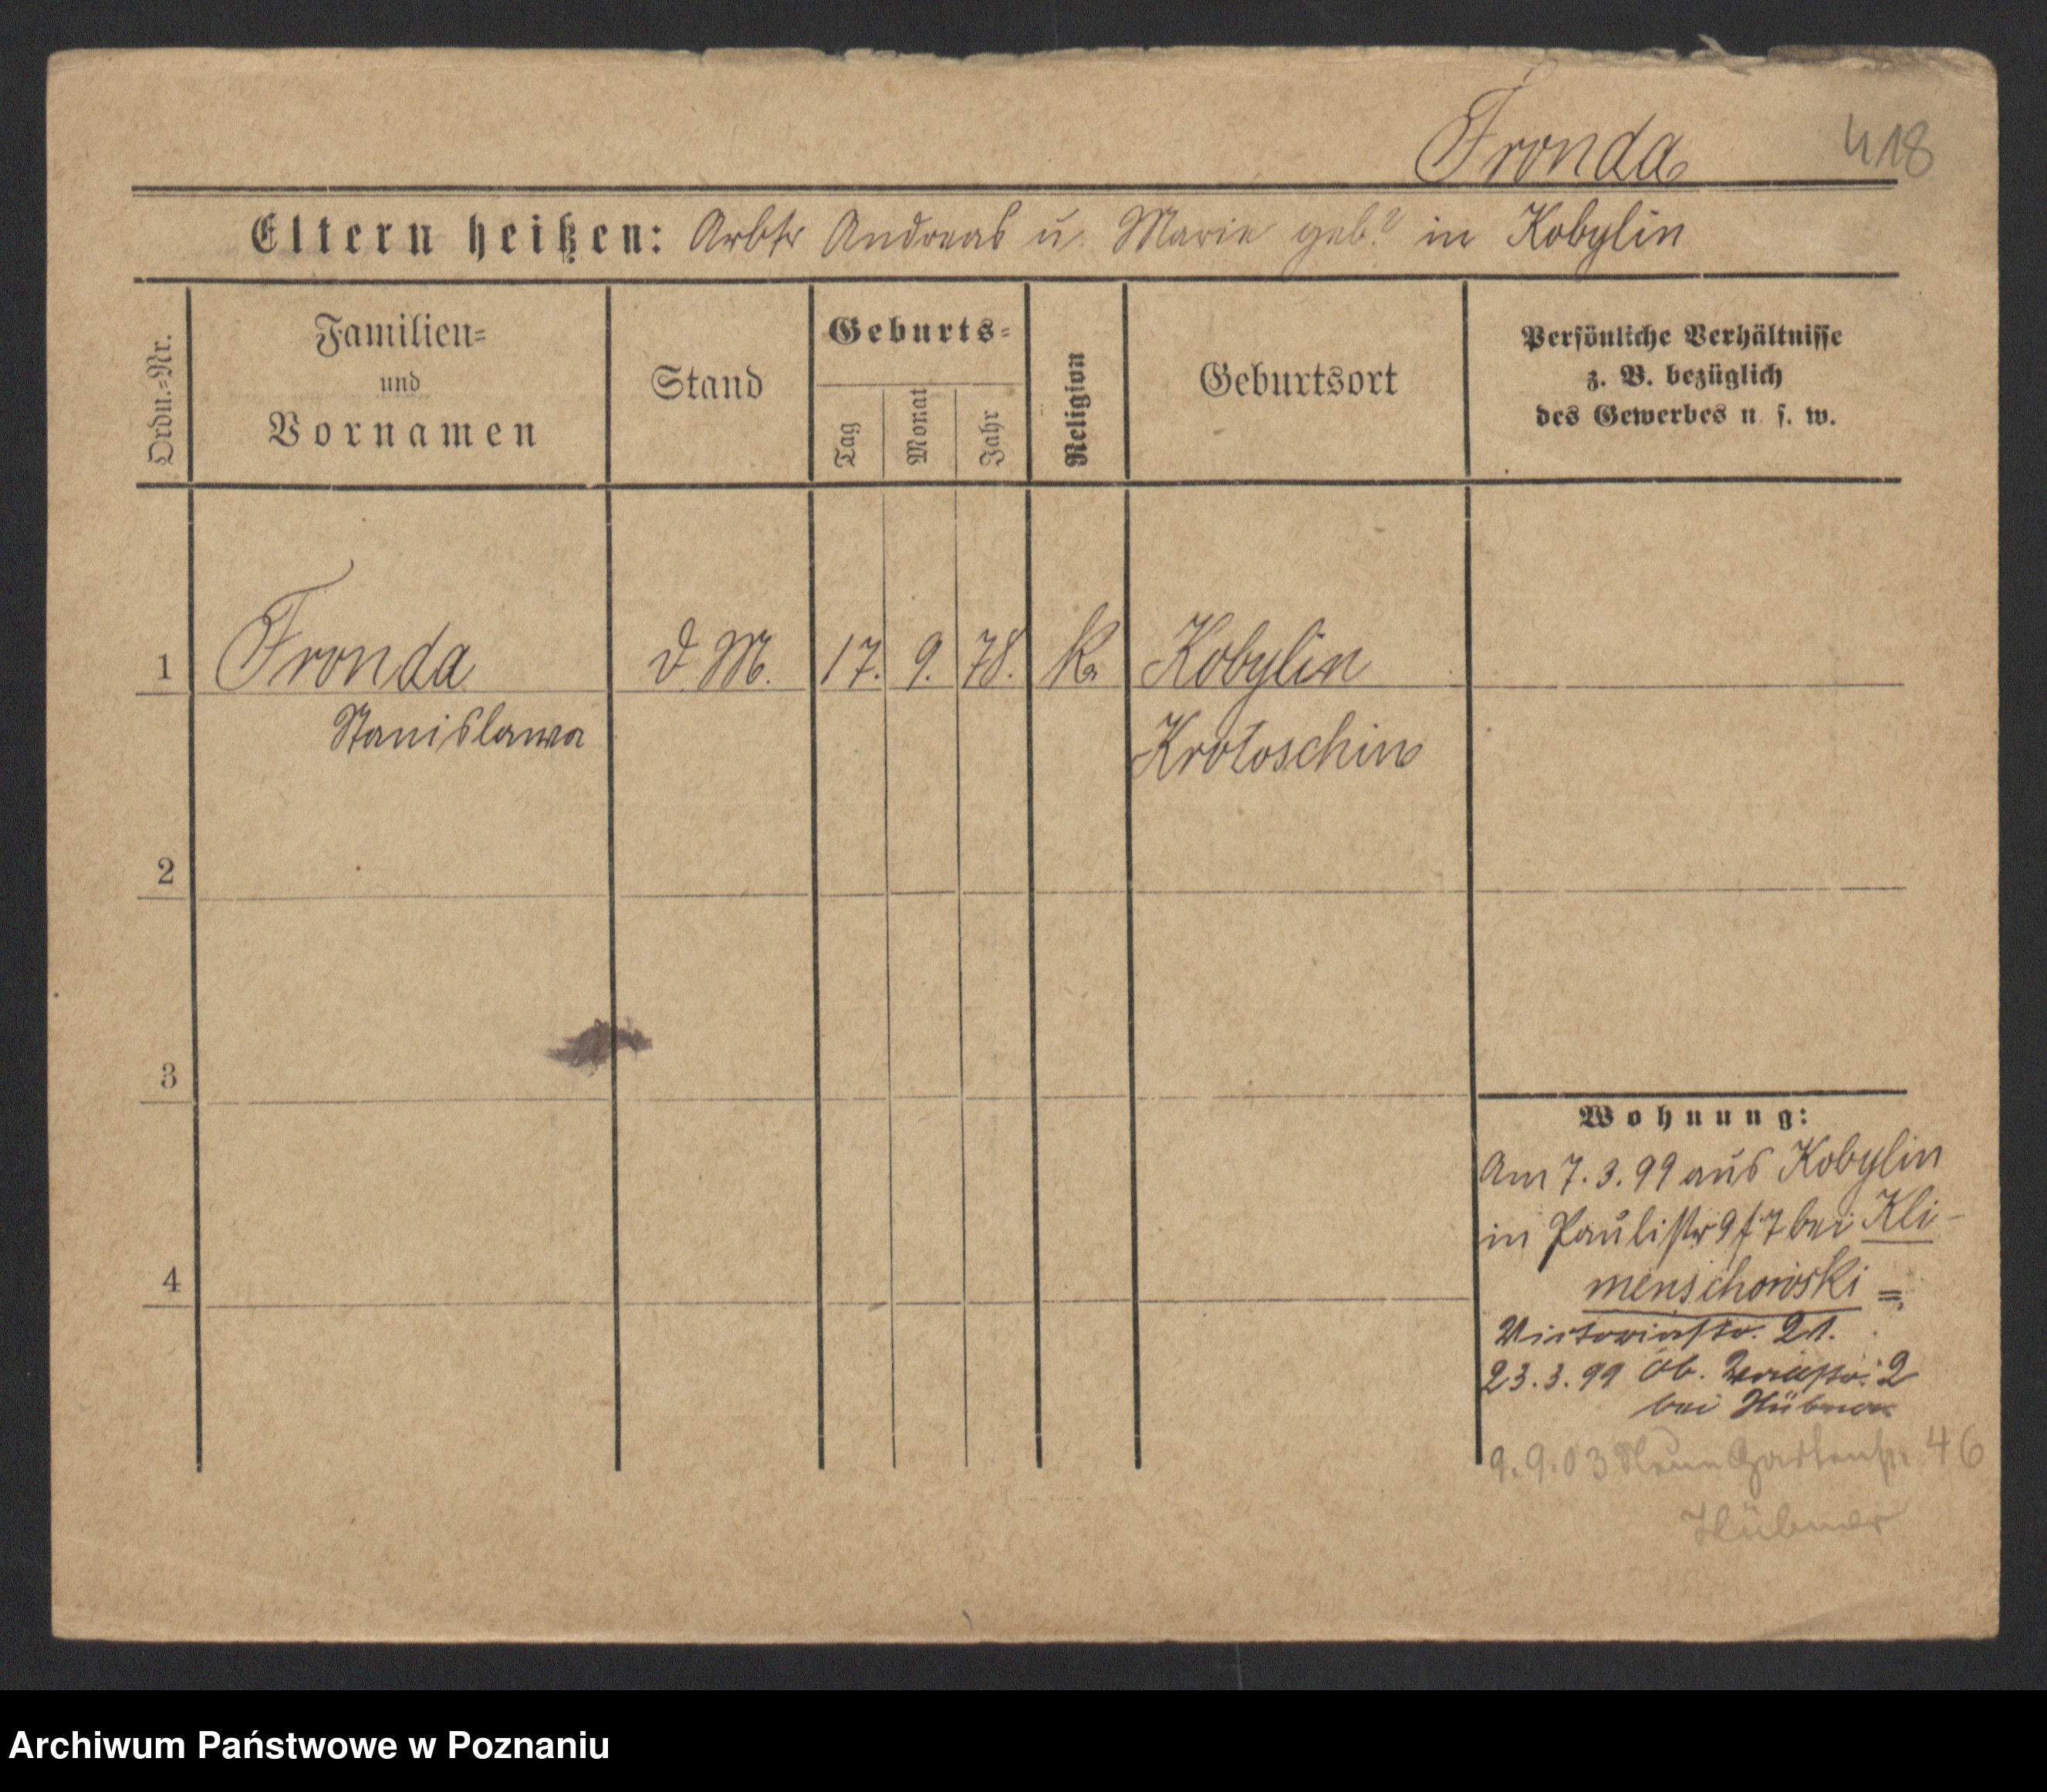 Fronda 418
Eltern heißen: Arbtr Andreas u. Marie geb.? in Kobylin
Ordn.=Nr.
Familien=
und
Vornamen
Stand
Geburts=
Tag
Monat
Jahr
Religion
Geburtsort
Persönliche Verhältnisse
z. B. bezüglich
des Gewerbes u. s. w.
1 Fronda d. M. 17. 9. 78. K. Kobylin
Stanislawa Krotoschin
2
3
4
Wohnung:
Am 7. 3. 99 aus Kobylin
in Paulistr 9 bei Kli-
menschowski =
Victoriastr. 21.
23. 3. 99 Ob. 2
bei Hübner
9. 9. 03 Neue Gartenstr 46
Hübner
Archiwum Państwowe w Poznaniu